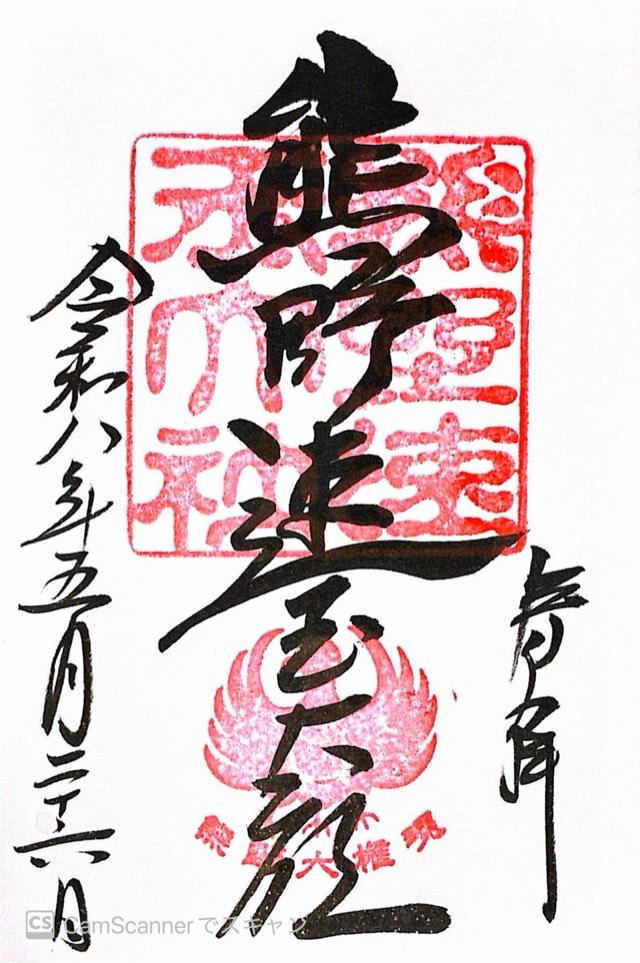 奉拝
熊野速玉大
令和八年五月二十六日
大権現
CS CamScanner でスキャン